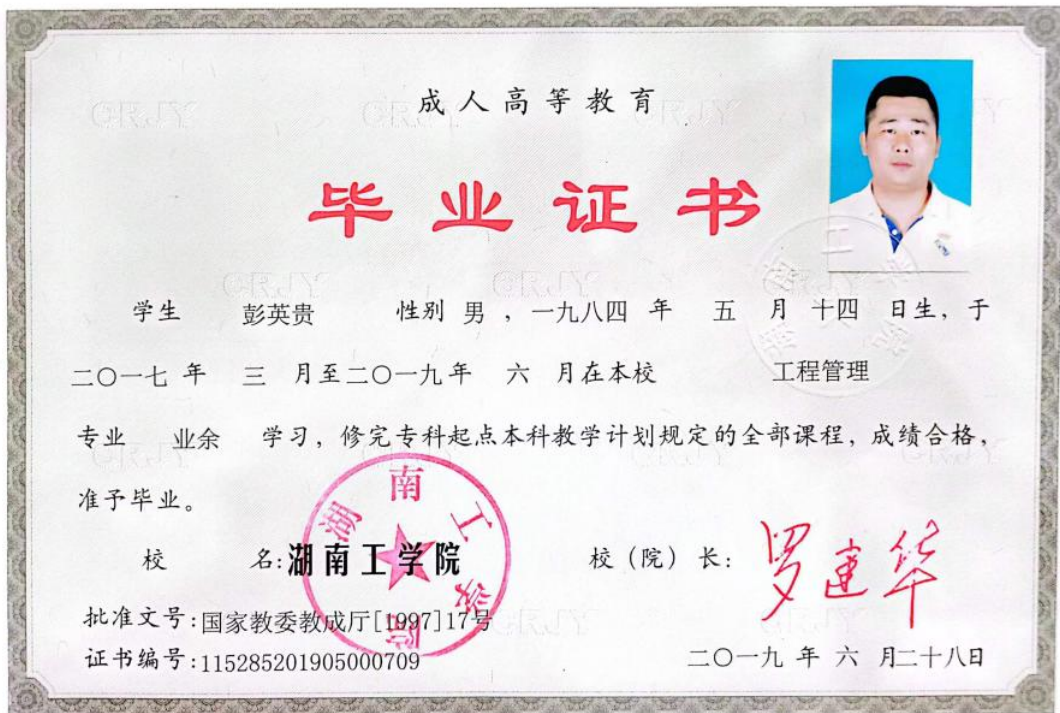 成人高等教育
毕业证书
学生 彭英贵 性别 男 ，一九八四 年 五 月 十四 日生，于
二〇一七 年 三 月至二〇一九年 六 月在本校 工程管理
专业 业余 学习，修完专科起点本科教学计划规定的全部课程，成绩合格，
准予毕业。
校 名:湖南工学院
校（院）长: 罗建华
批准文号:国家教委教成厅[1997]17号
证书编号:115285201905000709
二〇一九 年 六 月二十八日
湖南工学院
CRJY
CRJY
CRJY
CRJY